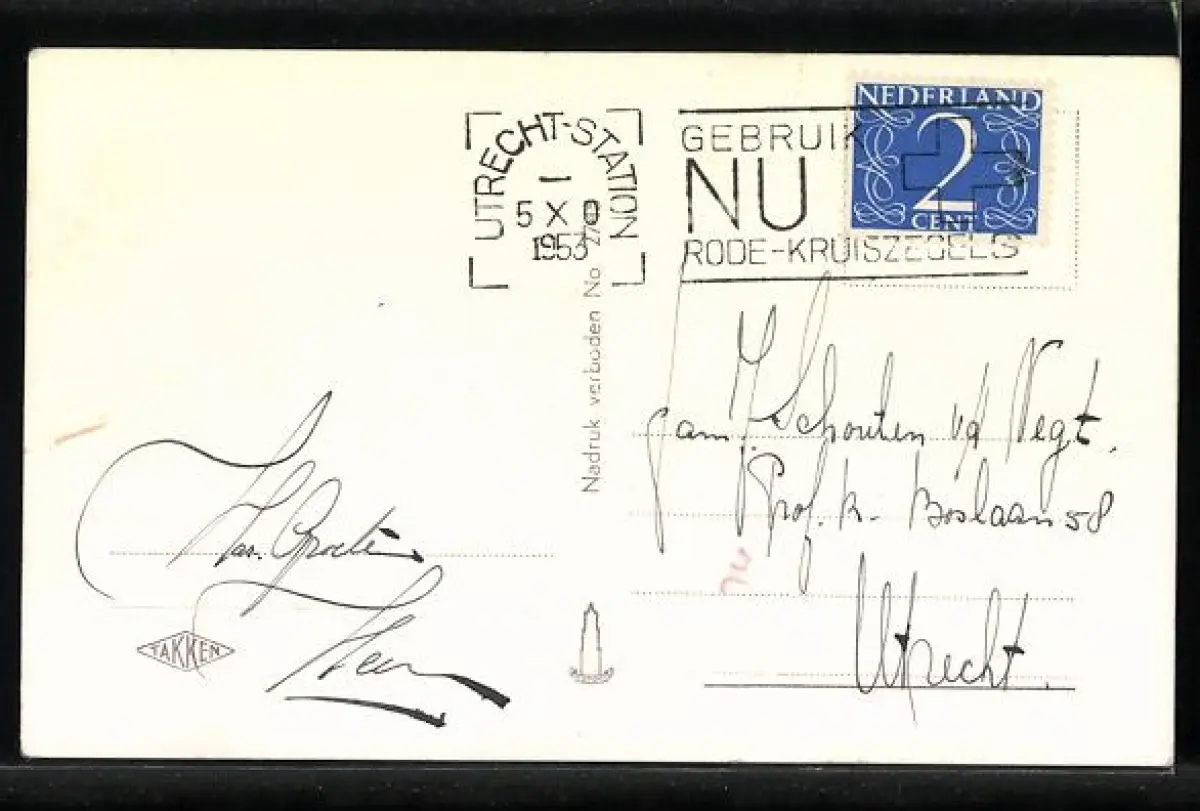 UTRECHT-STATION
5 X
1953
GEBRUIK
NU
RODE-KRUISZEGELS
NEDERLAND
2
CENT
Nadruk verboden No
Fam. Schouten v/d Vegt.
Prof. R. Boslaan 58
Utrecht.
Har. Groeten
TAKKEN